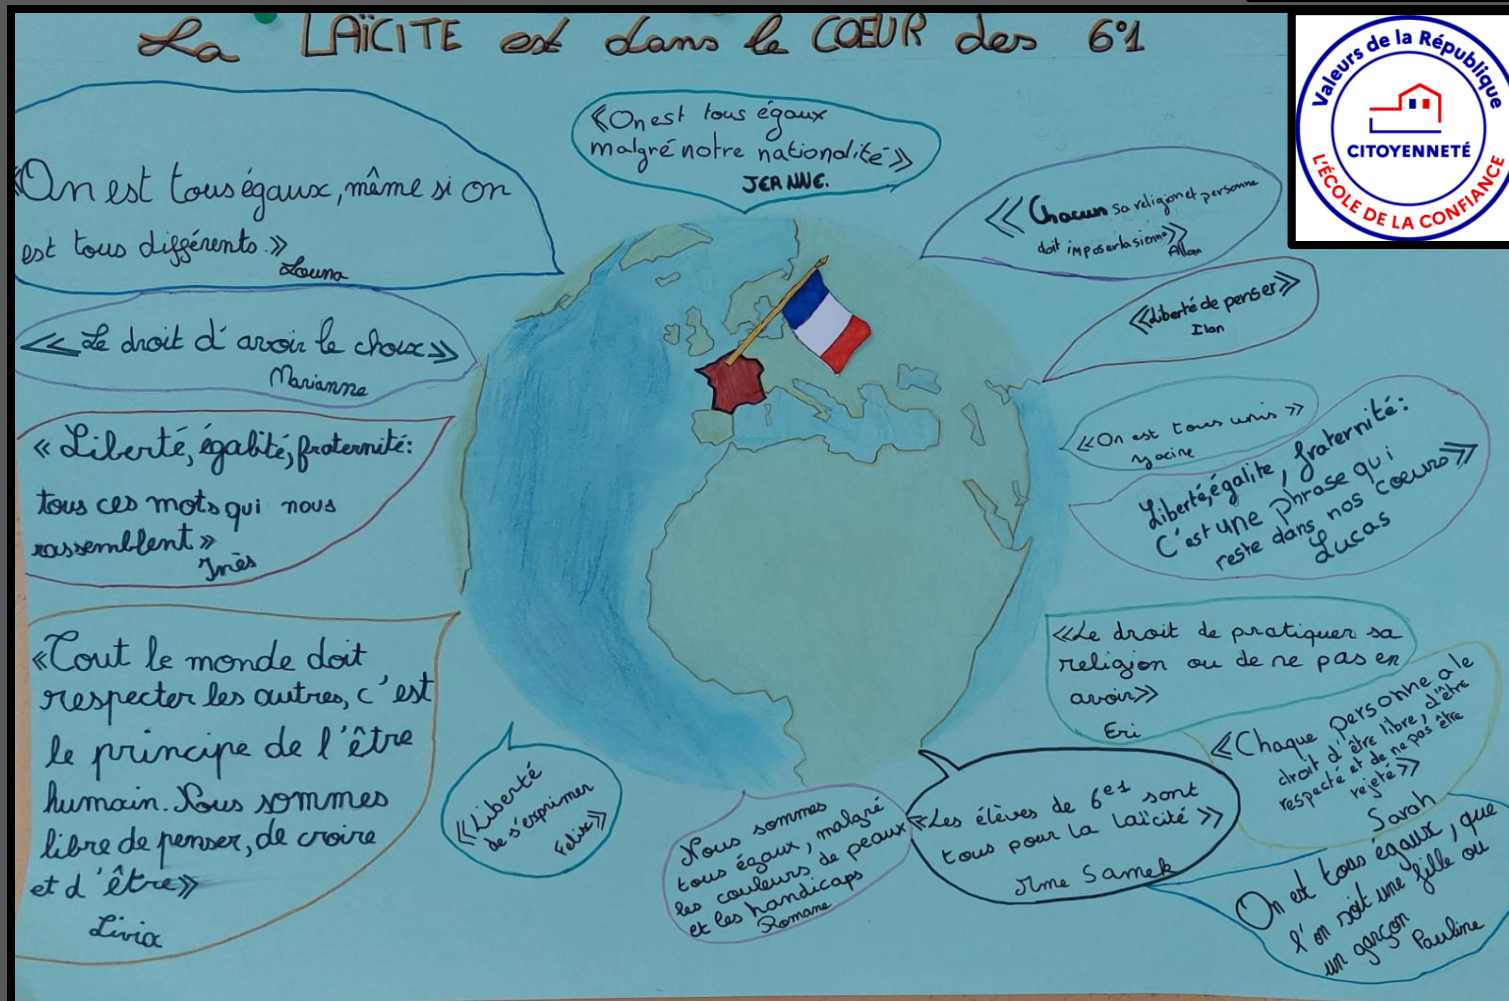 La LAÏCITE est dans le CŒUR des 6°1
Valeurs de la République
CITOYENNETÉ
L'ÉCOLE DE LA CONFIANCE
«On est tous égaux, même si on
est tous différents.»
Louna
«On est tous égaux
malgré notre nationalité»
JEANNE.
«Chacun sa religion et personne
doit imposer la sienne»
Allan
«Liberté de penser»
Ilan
«Le droit d'avoir le choix»
Marianne
«On est tous unis»
yacine
«Liberté, égalité, fraternité:
tous ces mots qui nous
rassemblent»
Inès
Liberté, égalite, fraternité:
C'est une phrase qui
reste dans nos coeurs»
Lucas
«Le droit de pratiquer sa
religion ou de ne pas en
avoir»
Eri
«Tout le monde doit
respecter les autres, c'est
le principe de l'être
humain. Nous sommes
libre de penser, de croire
et d'être»
Livia
«Chaque personne a le
droit d'être libre, d'être
respecté et de ne pas être
rejeté»
Sarah
«Liberté
de s'exprimer
Felix»
Nous sommes
tous égaux, malgré
les couleurs de peaux
et les handicaps
Romane
«Les élèves de 6e1 sont
tous pour la laïcité»
Mme Samek
On est tous égaux, que
l'on soit une fille ou
un garçon
Pauline